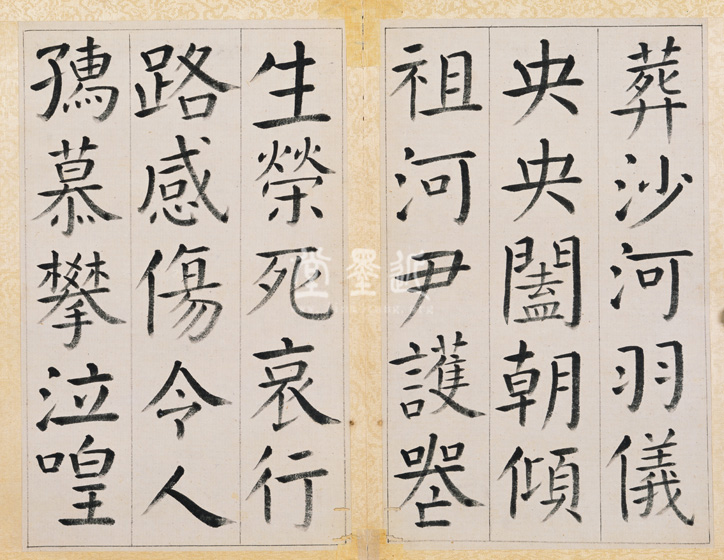 葬沙河羽儀
央央闔朝傾
祖河尹護喪
生榮死哀行
路感傷令人
孺慕攀泣喤
近墨堂